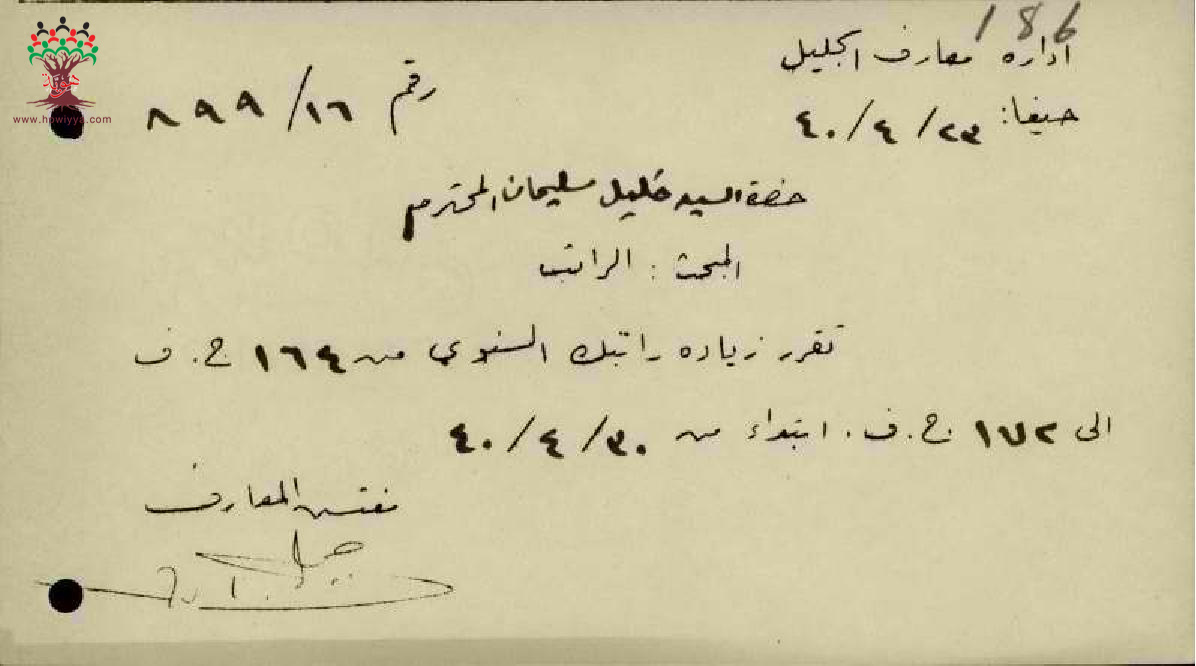 186
اداره معارف الجليل
حيفا: ٢٣/٤/٤٠
رقم ١٦/٨٩٩
حضرة السيد خليل سليمان المحترم
المبحث : الراتب
تقرر زياده راتبك السنوي من ١٦٤ ج. ف
الى ١٧٢ ج. ف. ابتداء من ٣٠/٤/٤٠
مفتش المعارف
هوية
www.howiyya.com